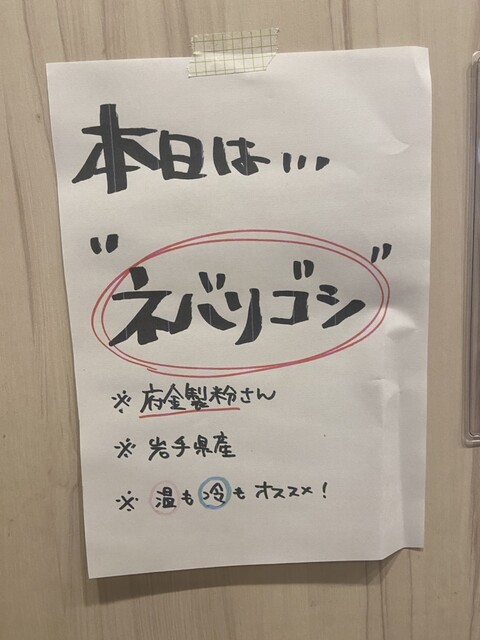 本日は...
"ネバリゴシ"
※ 府金製粉さん
※ 岩手県産
※ 温も冷もオススメ!